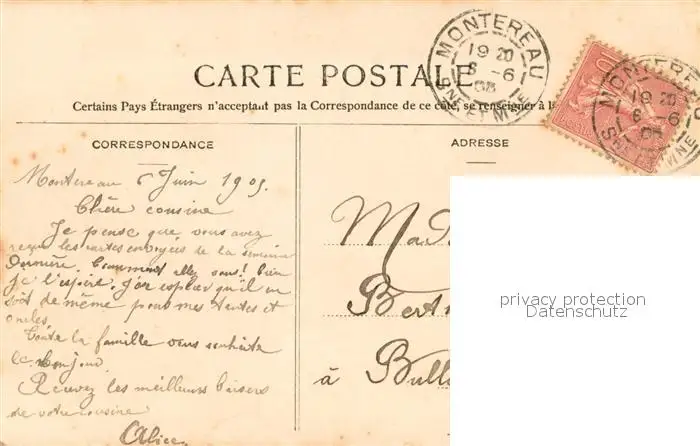 CARTE POSTALE
Certains Pays Étrangers n'acceptent pas la Correspondance de ce côté, se renseigner à l
CORRESPONDANCE
Montereau 6 Juin 1905.
Chère cousine
Je pense que vous avez
reçu les cartes envoyées de la semaine
dernière. Comment allez vous! bien
je l'espère, j'ose espérer qu'il en
soit de même pour mes tantes et
oncles.
Toute la famille vous souhaite
le bonjour.
Recevez les meilleurs baisers
de votre cousine
Alice
ADRESSE
Bert
à Bull
MONTEREAU
19 20
6 -6
05
SNE ET MNE
MONTEREAU
19 20
6 -6
05
SNE ET MNE
10
privacy protection
Datenschutz